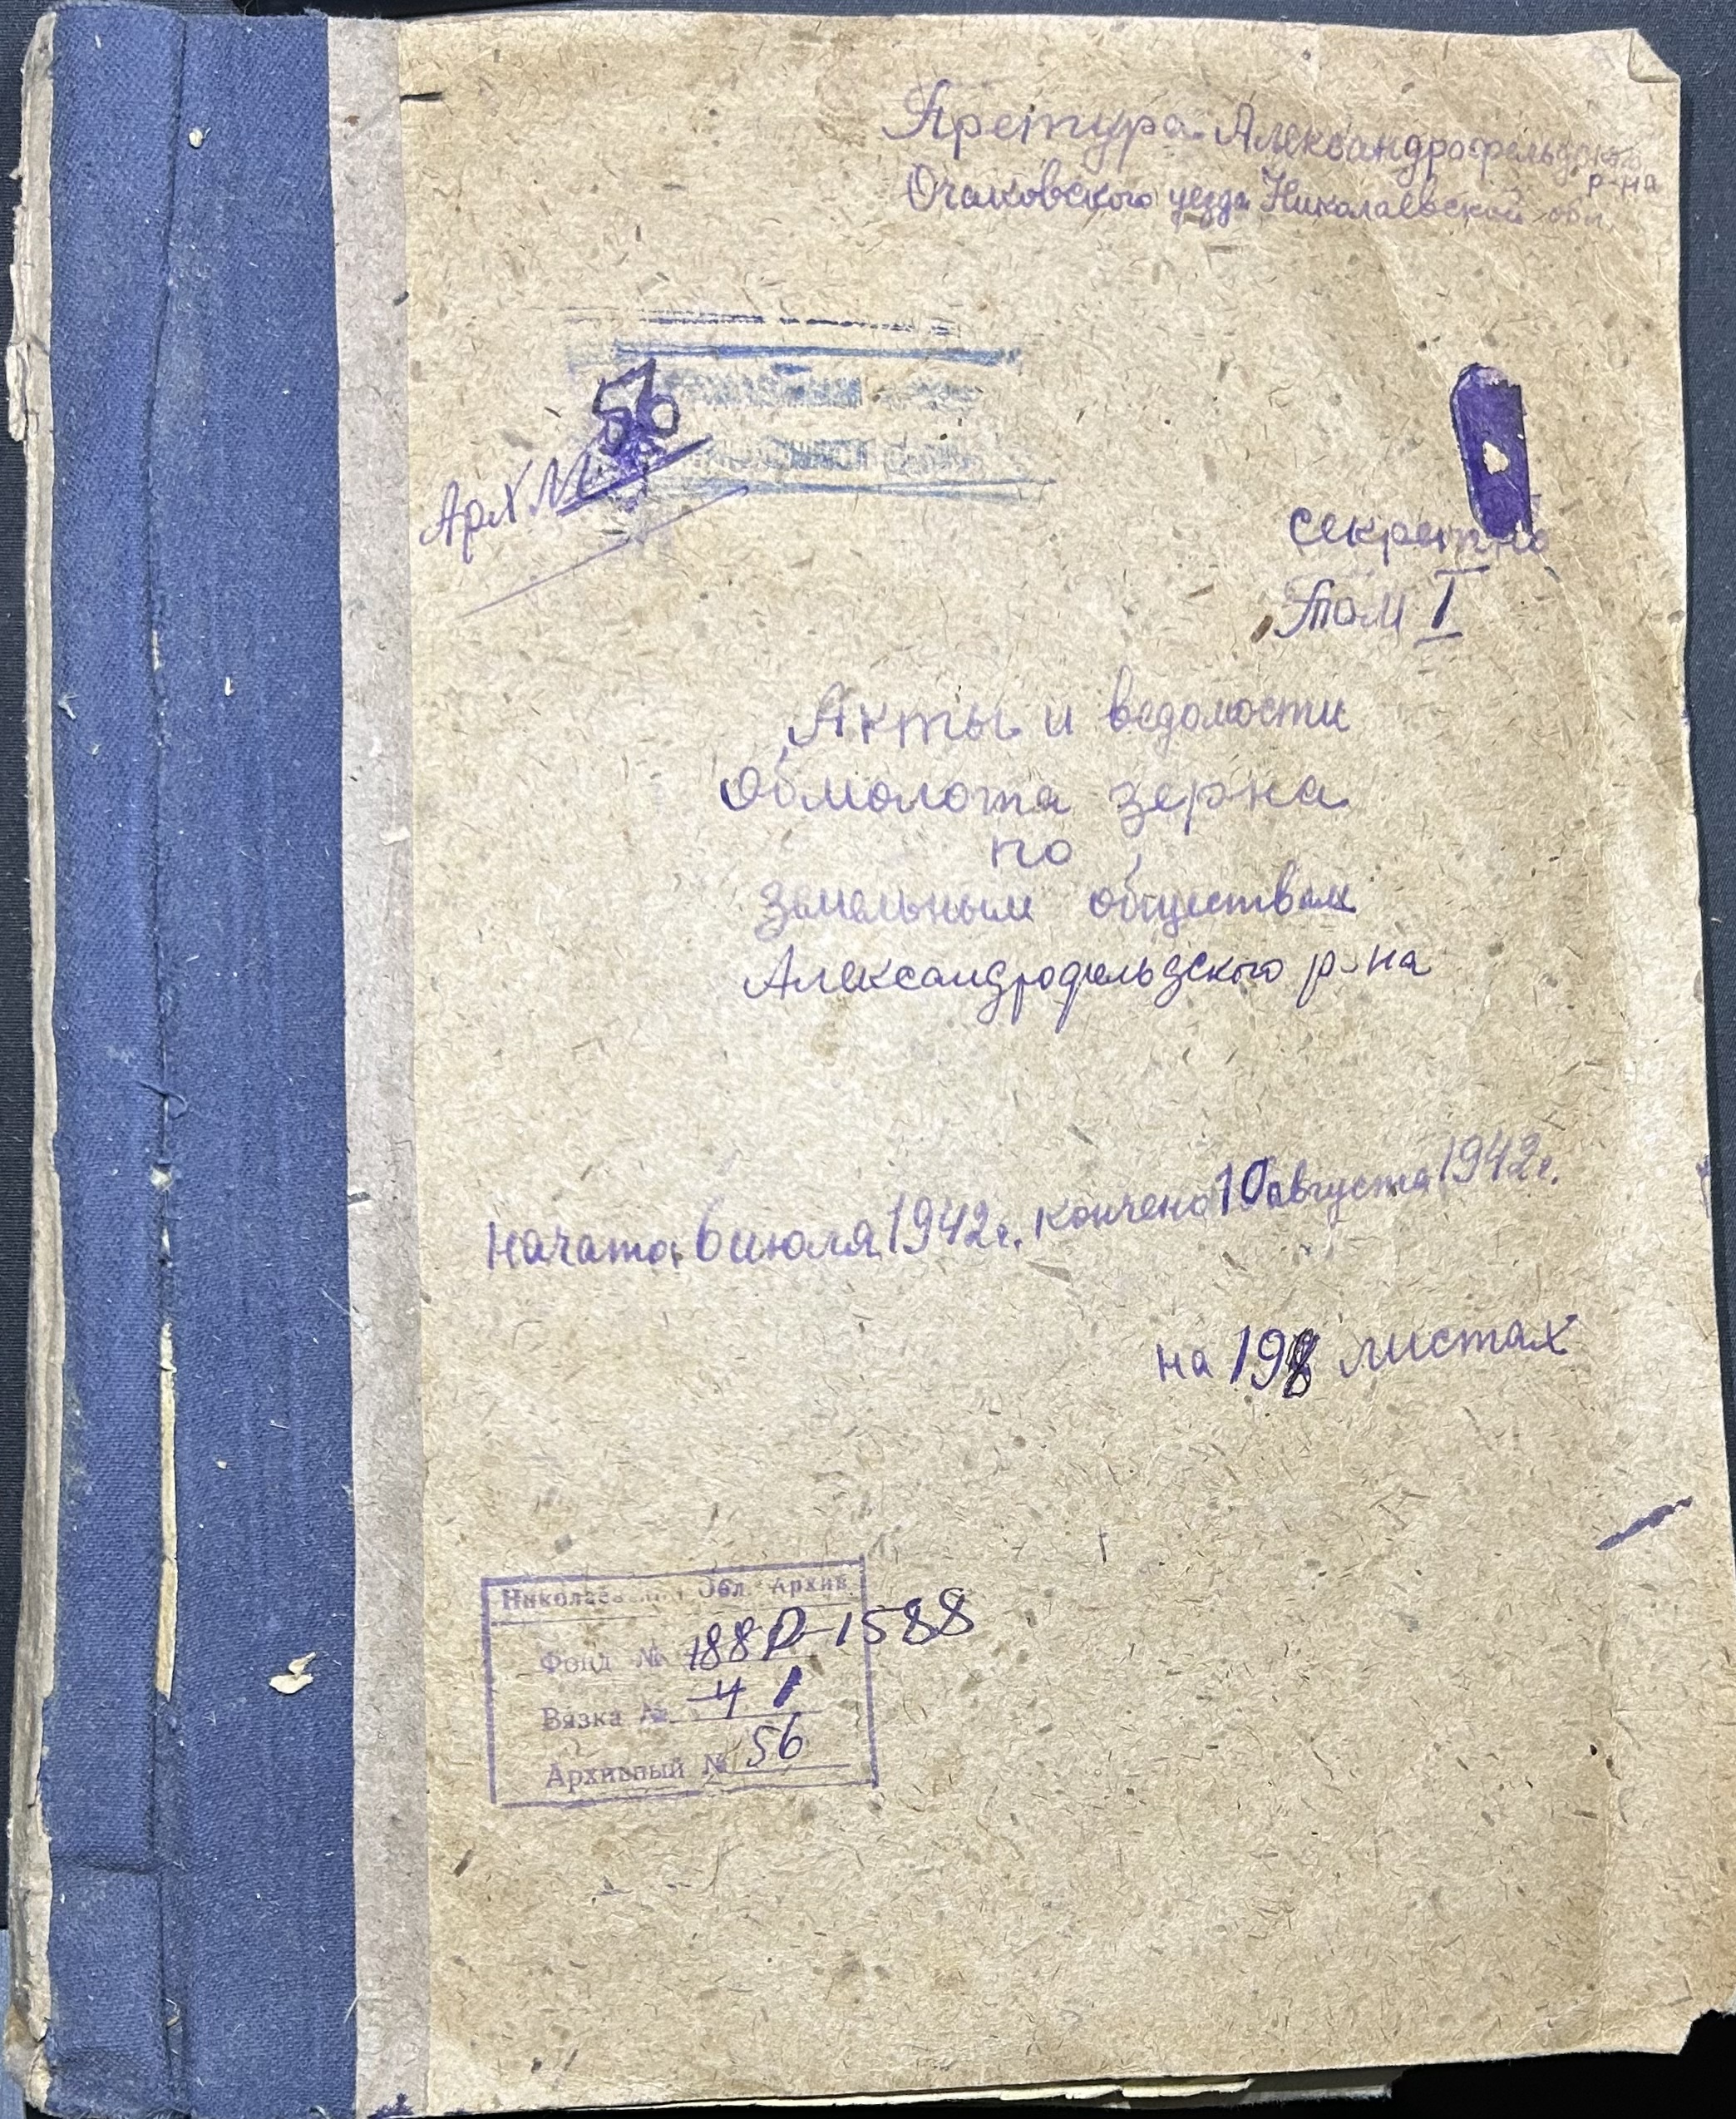 Претура Александрофельдского
р-на
Очаковского уезда Николаевской обл.
56
Арх №
секретно
Том I
Акты и ведомости
обмолота зерна
по
земельным обществам
Александрофельдского р-на
начато 6 июля 1942 г. кончено 10 августа 1942 г.
на 198 листах
Обл. Архив
Фонд № 188 Р-1588
Вязка № 4 1
Архивный № 56